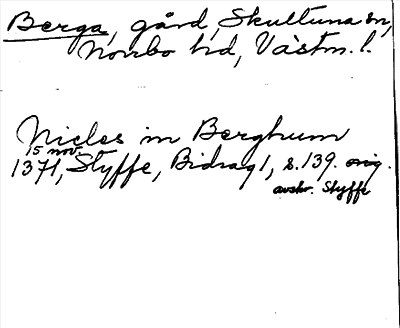 Berga, gård, Skultuna sn,
Norrbo hd, Västm. l.
Nicles in Berghum
15 nov.
1371, Styffe, Bidrag 1, s. 139. orig.
avskr. Styffe